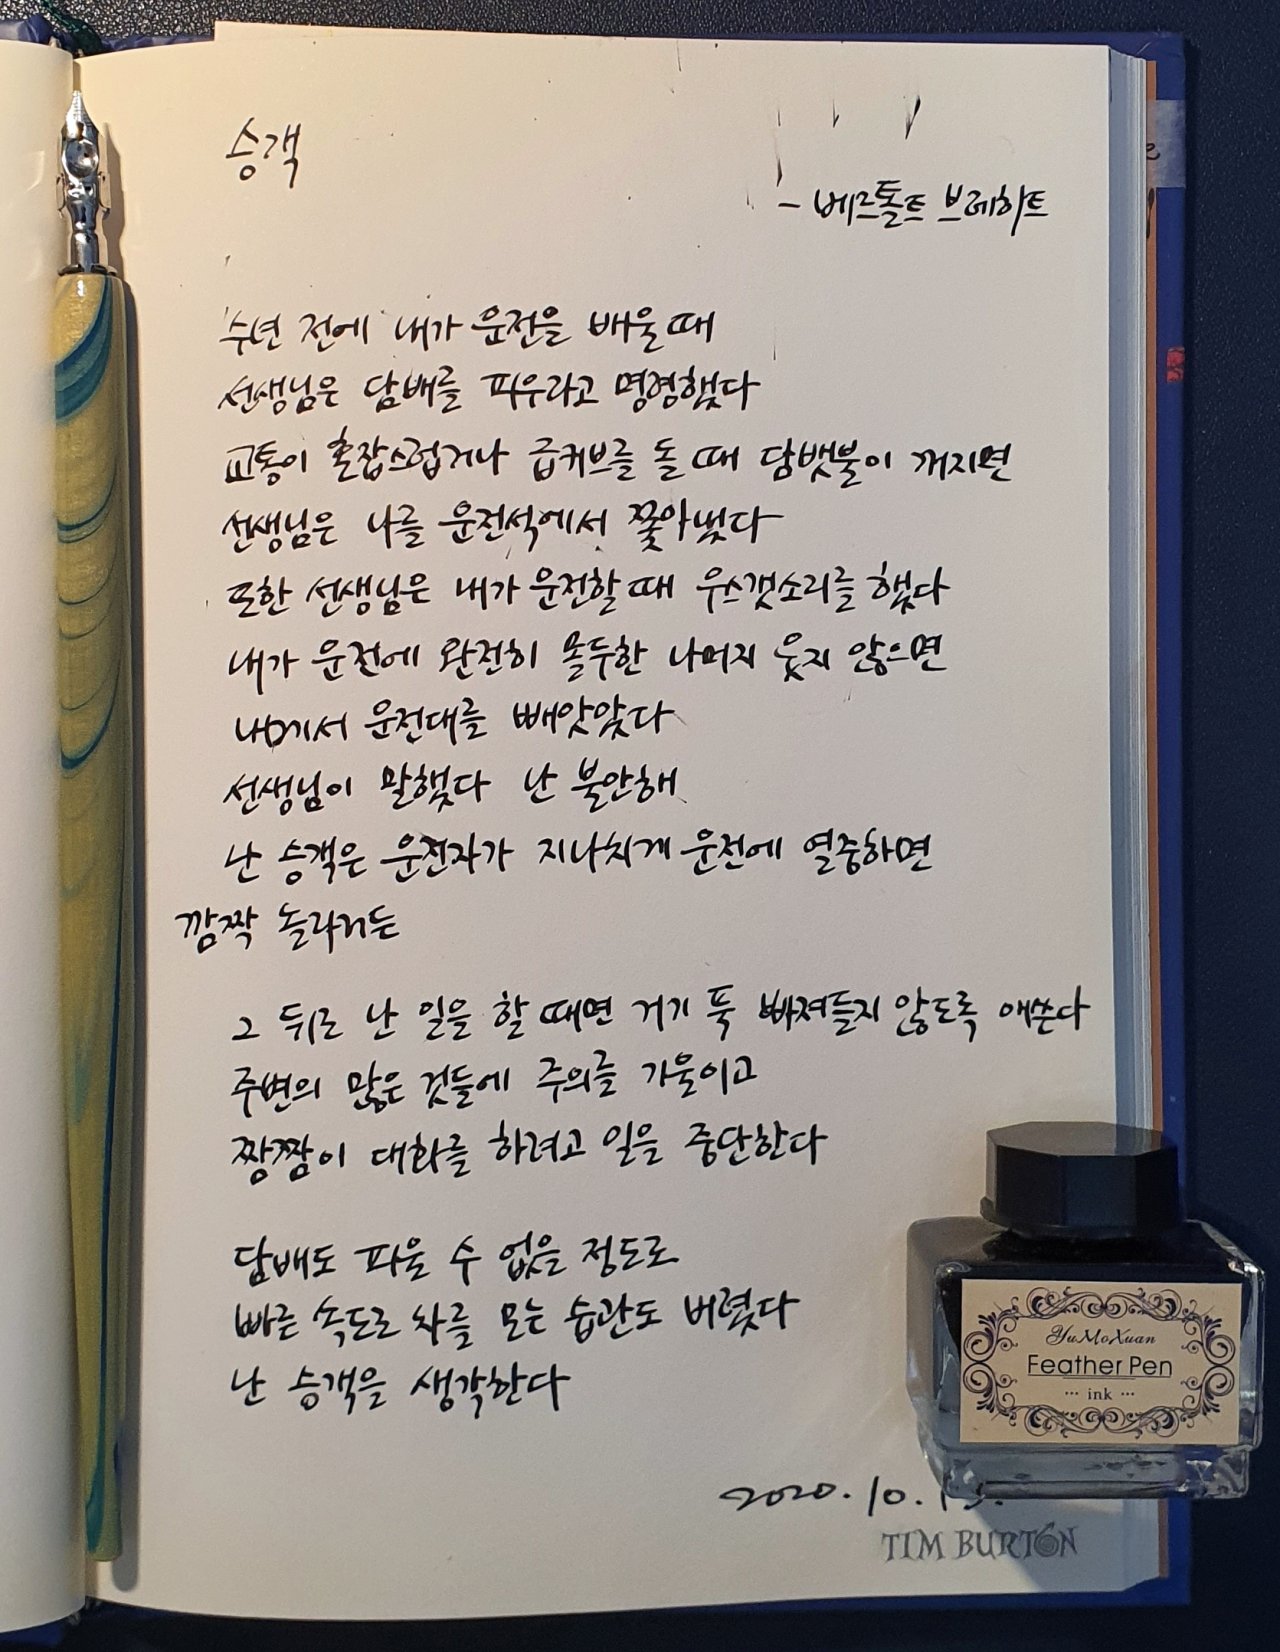 승객
- 베르톨트 브레히트
수년 전에 내가 운전을 배울 때
선생님은 담배를 피우라고 명령했다
교통이 혼잡스럽거나 급커브를 돌 때 담뱃불이 꺼지면
선생님은 나를 운전석에서 쫓아냈다
또한 선생님은 내가 운전할 때 우스갯소리를 했다
내가 운전에 완전히 몰두한 나머지 웃지 않으면
내게서 운전대를 빼앗았다
선생님이 말했다 난 불안해
난 승객은 운전자가 지나치게 운전에 열중하면
깜짝 놀라거든
그 뒤로 난 일을 할 때면 거기 푹 빠져들지 않도록 애쓴다
주변의 많은 것들에 주의를 기울이고
짬짬이 대화를 하려고 일을 중단한다
담배도 피울 수 없을 정도로
빠른 속도로 차를 모는 습관도 버렸다
난 승객을 생각한다
2020. 10.
TIM BURTON
YuMoXuan
Feather Pen
... ink ...